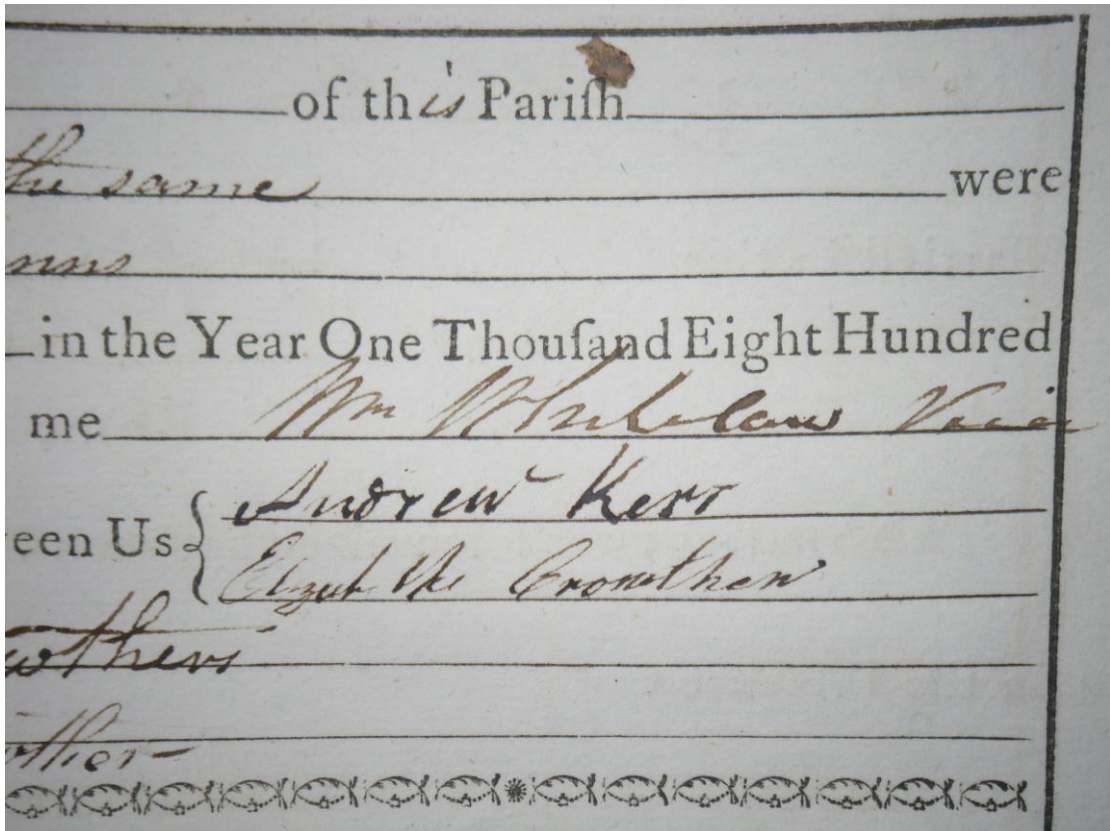 of this Pariſh
the same were
nns
in the Year One Thouſand Eight Hundred
me Wm Whitelaw Vicar
een Us { Andrew Kerr
Elizabeth Crowther
wthers
wther